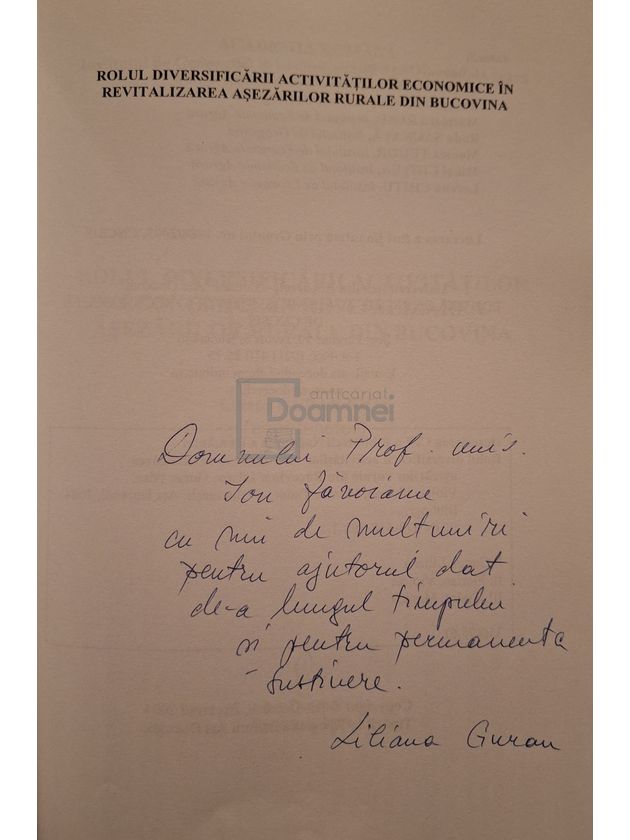 ROLUL DIVERSIFICĂRII ACTIVITĂȚILOR ECONOMICE ÎN
REVITALIZAREA AȘEZĂRILOR RURALE DIN BUCOVINA
anticariat
Doamnei
Domnului Prof. univ.
Ion Făvoiame
cu mii de multumiri
pentru ajutorul dat
de-a lungul timpului
și pentru permanenta
sustinere.
Liliana Guran